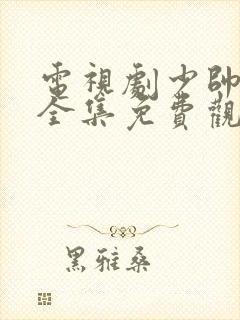 電視劇少帥
全集免費觀
黑雅桑